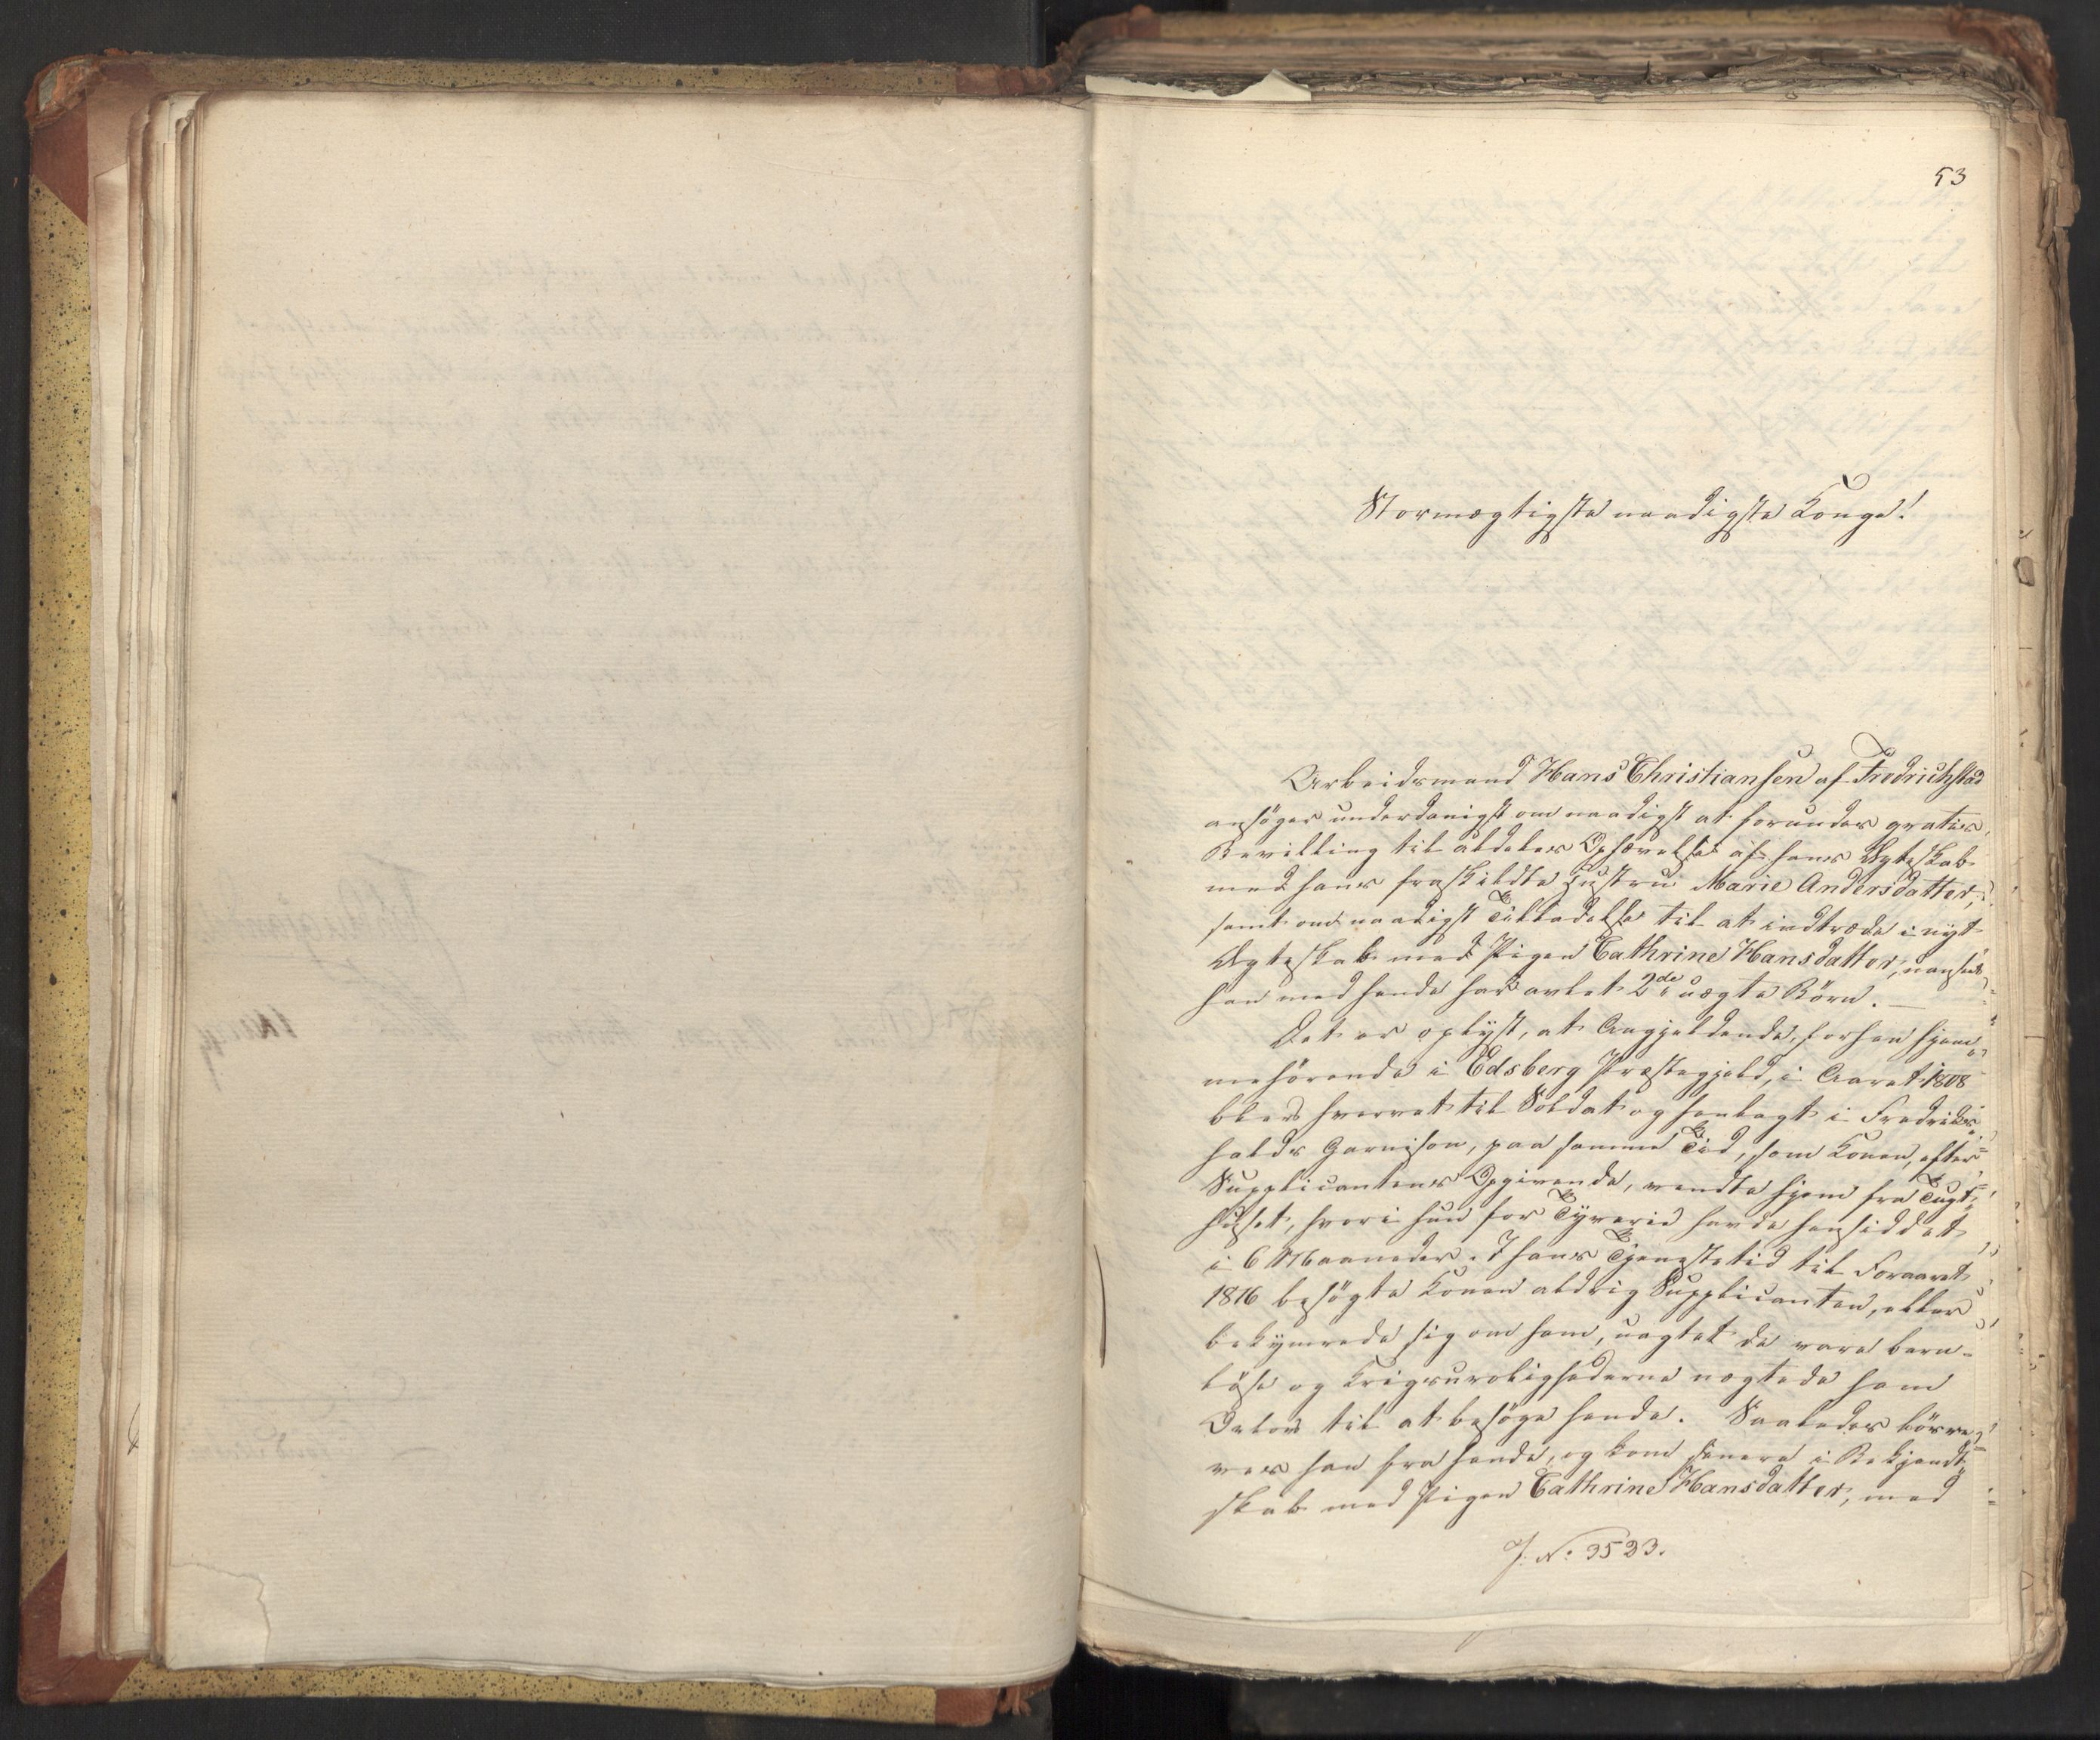 53
Stormægtigste naadigste Konge!
Arbeidsmand Hans Christiansen af Fredrichstad
ansøger underdanigst om naadigst at forundes gratis
Bevilling til aldeles Ophævelse af hans Ægteskab
med hans fraskildte Hustru Marie Andersdatter,
samt om naadigst Tilladelse til at indtræde i nyt
Ægteskab med Pigen Cathrine Hansdatter, uanseet
han med hende har avlet 2de uægte Børn.
Det er oplyst, at Angjeldende, forhen hjem-
mehörende i Edsberg Præstegjeld, i Aaret 1808
blev hvervet til Soldat og henlagt i Fredriks-
halds Garnison, paa samme Tid, som Konen, efter
Supplicantens Opgivende, vendte hjem fra Tugt-
huset, hvori hun for Tyverie havde hensiddet
i 6 Maaneder. I hans Tjenestetid til Foraaret
1816 besøgte Konen aldrig Supplicanten, eller
bekymrede sig om ham, uagtet de vare barn-
løse og Krigsurolighederne nægtede ham
Orlov til at besøge hende. Saaledes
han fra hende, og kom senere i Bekjendt-
skab med Pigen Cathrine Hansdatter, med
J. No: 3523.